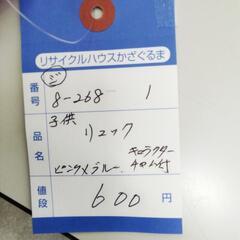 リサイクルハウスかざぐるま
ジ
番号 8-268 1
品名 子供 リュック
ピンク×ブルー キャラクター
値段 600円